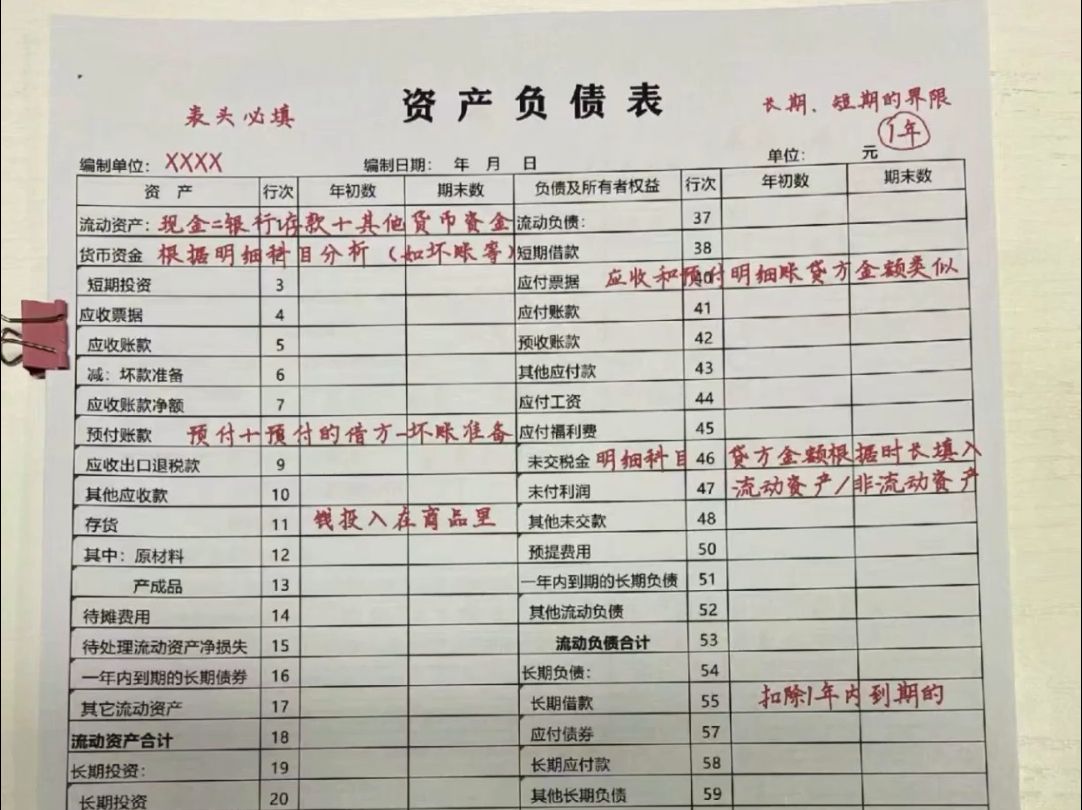 资产负债表
表头必填
长期、短期的界限
1年
编制单位： XXXX 编制日期： 年 月 日 单位： 元
资 产 行次 年初数 期末数 负债及所有者权益 行次 年初数 期末数
流动资产： 现金=银行存款+其他货币资金 流动负债： 37
货币资金 根据明细科目分析（如坏账等） 短期借款 38
短期投资 3 应付票据 应收和预付明细账贷方金额类似 40
应收票据 4 应付账款 41
应收账款 5 预收账款 42
减：坏款准备 6 其他应付款 43
应收账款净额 7 应付工资 44
预付账款 预付+预付的借方-坏账准备 应付福利费 45
应收出口退税款 9 未交税金 明细科目 46 贷方金额根据时长填入
其他应收款 10 未付利润 47 流动资产/非流动资产
存货 11 钱投入在商品里 其他未交款 48
其中：原材料 12 预提费用 50
产成品 13 一年内到期的长期负债 51
待摊费用 14 其他流动负债 52
待处理流动资产净损失 15 流动负债合计 53
一年内到期的长期债券 16 长期负债： 54
其它流动资产 17 长期借款 55 扣除1年内到期的
流动资产合计 18 应付债券 57
长期投资： 19 长期应付款 58
长期投资 20 其他长期负债 59